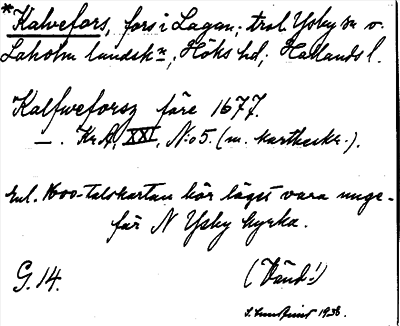 *Kalvefors, fors i Lagan; trol. Ysby sn o.
Laholm landskn, Höks hd, Hallands l.
Kalfweforsz före 1677.
—. Kr.A, XXI, No 5. (m. kartbeskr.).
Enl. 1600-talskartan bör läget vara unge-
fär N Ysby kyrka.
G. 14.
(Vänd!)
1938.